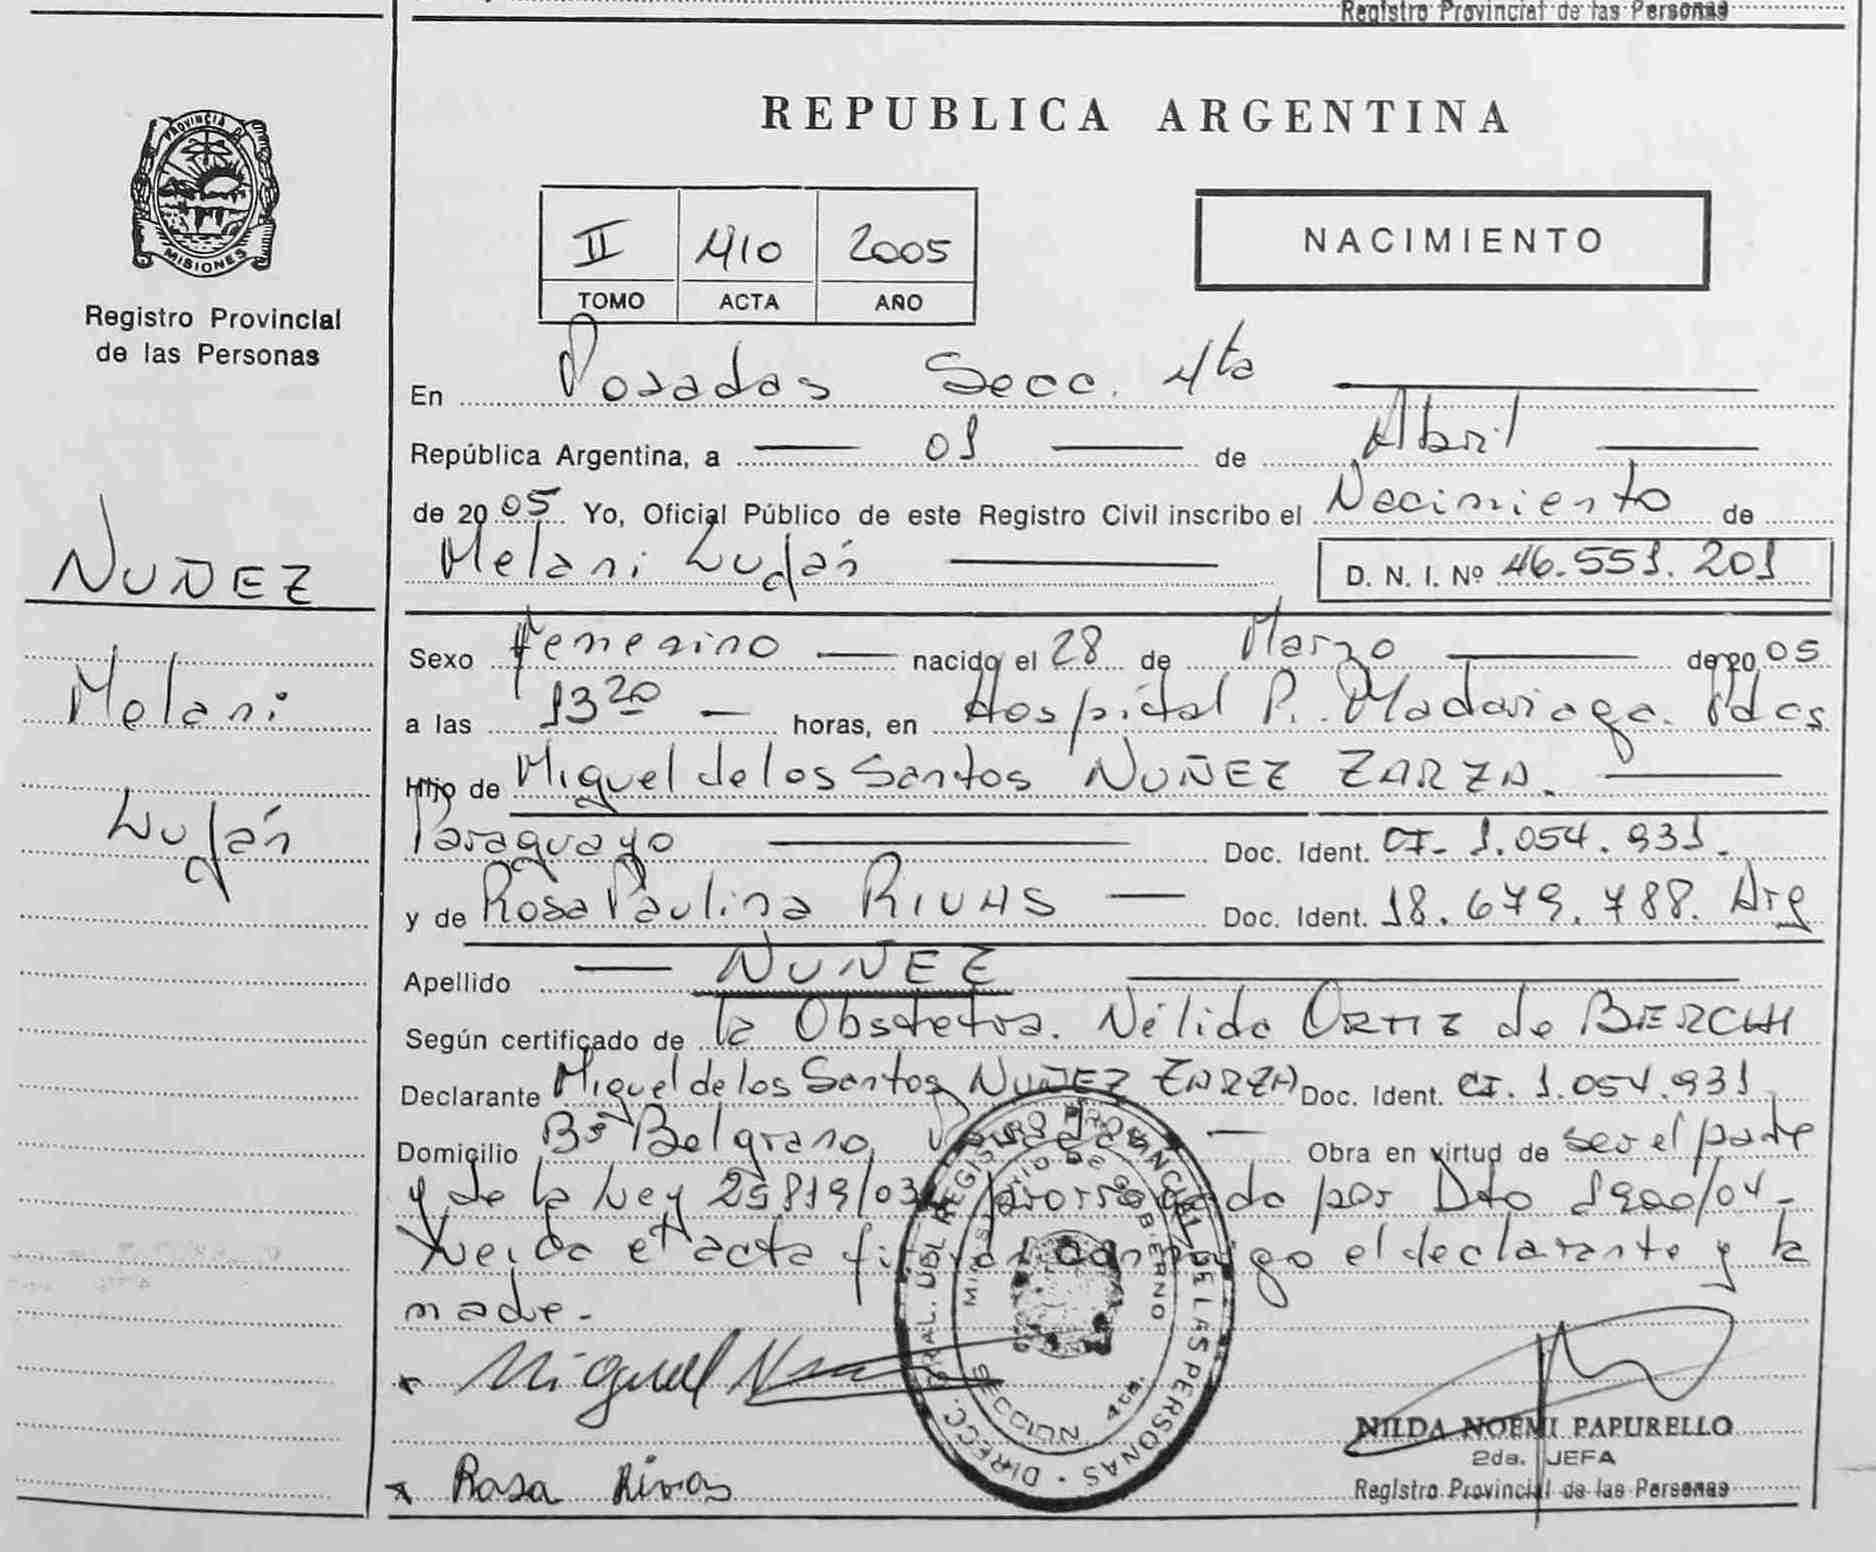 Registro Provincial de las Personas
PROVINCIA D
MISIONES
Registro Provincial
de las Personas
NUÑEZ
Melani
Luján
REPUBLICA ARGENTINA
II 410 2005
TOMO ACTA AÑO
NACIMIENTO
En Posadas Secc. 4ta
República Argentina, a 01 de Abril
de 2005 Yo, Oficial Público de este Registro Civil inscribo el Nacimiento de
Melani Luján D. N. I. Nº 46.551.201
Sexo femenino nacido el 28 de Marzo de 2005
a las 13 20 horas, en Hospital R. Madariaga. Pdas
Hijo de Miguel de los Santos NUÑEZ ZARZA.
Paraguayo Doc. Ident. CI- 1.054.931.
y de Rosa Paulina RIVAS Doc. Ident. 18.679.788. Arg
Apellido NUÑEZ
Según certificado de la Obstetra. Nélida ORTIZ de BERCHI
Declarante Miguel de los Santos NUÑEZ ZARZA Doc. Ident. CI. 1.054.931
Domicilio Bº Belgrano, Posadas Obra en virtud de ser el padre
y de la Ley 25819/03 prorrogado por Dto 1900/04-
Leída el acta firman conmigo el declarante y la
madre.-
x Miguel
x Rosa Rivas
DIRECC. GRAL. DEL REGISTRO PROVINCIAL DE LAS PERSONAS
MINISTERIO DE GOBIERNO
SECCION 4ta.
NILDA NOEMI PAPURELLO
2da. JEFA
Registro Provincial de las Personas